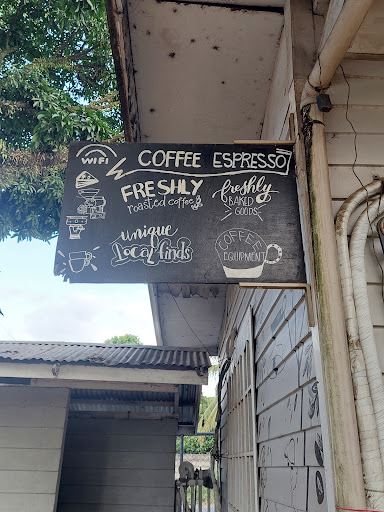 WIFI
COFFEE ESPRESSO
FRESHLY
roasted coffee
freshly
BAKED
GOODS
unique
Local finds
COFFEE
EQUIPMENT